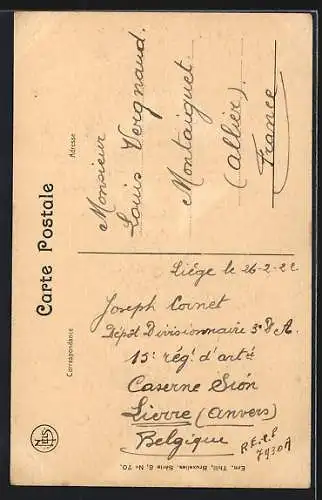 Carte Postale
Correspondance
Adresse
Monsieur
Louis Vergnaud.
Montaiguet
(Allier).
France
Liége le 26-2-22
Joseph Cornet
Dépôt Divisionnaire 3e D A.
15e rég! d'artie
Caserne Sion
Lierre (Anvers)
Belgique
7930A
Ern. Thill, Bruxelles. Série 8, No 70.
Nels